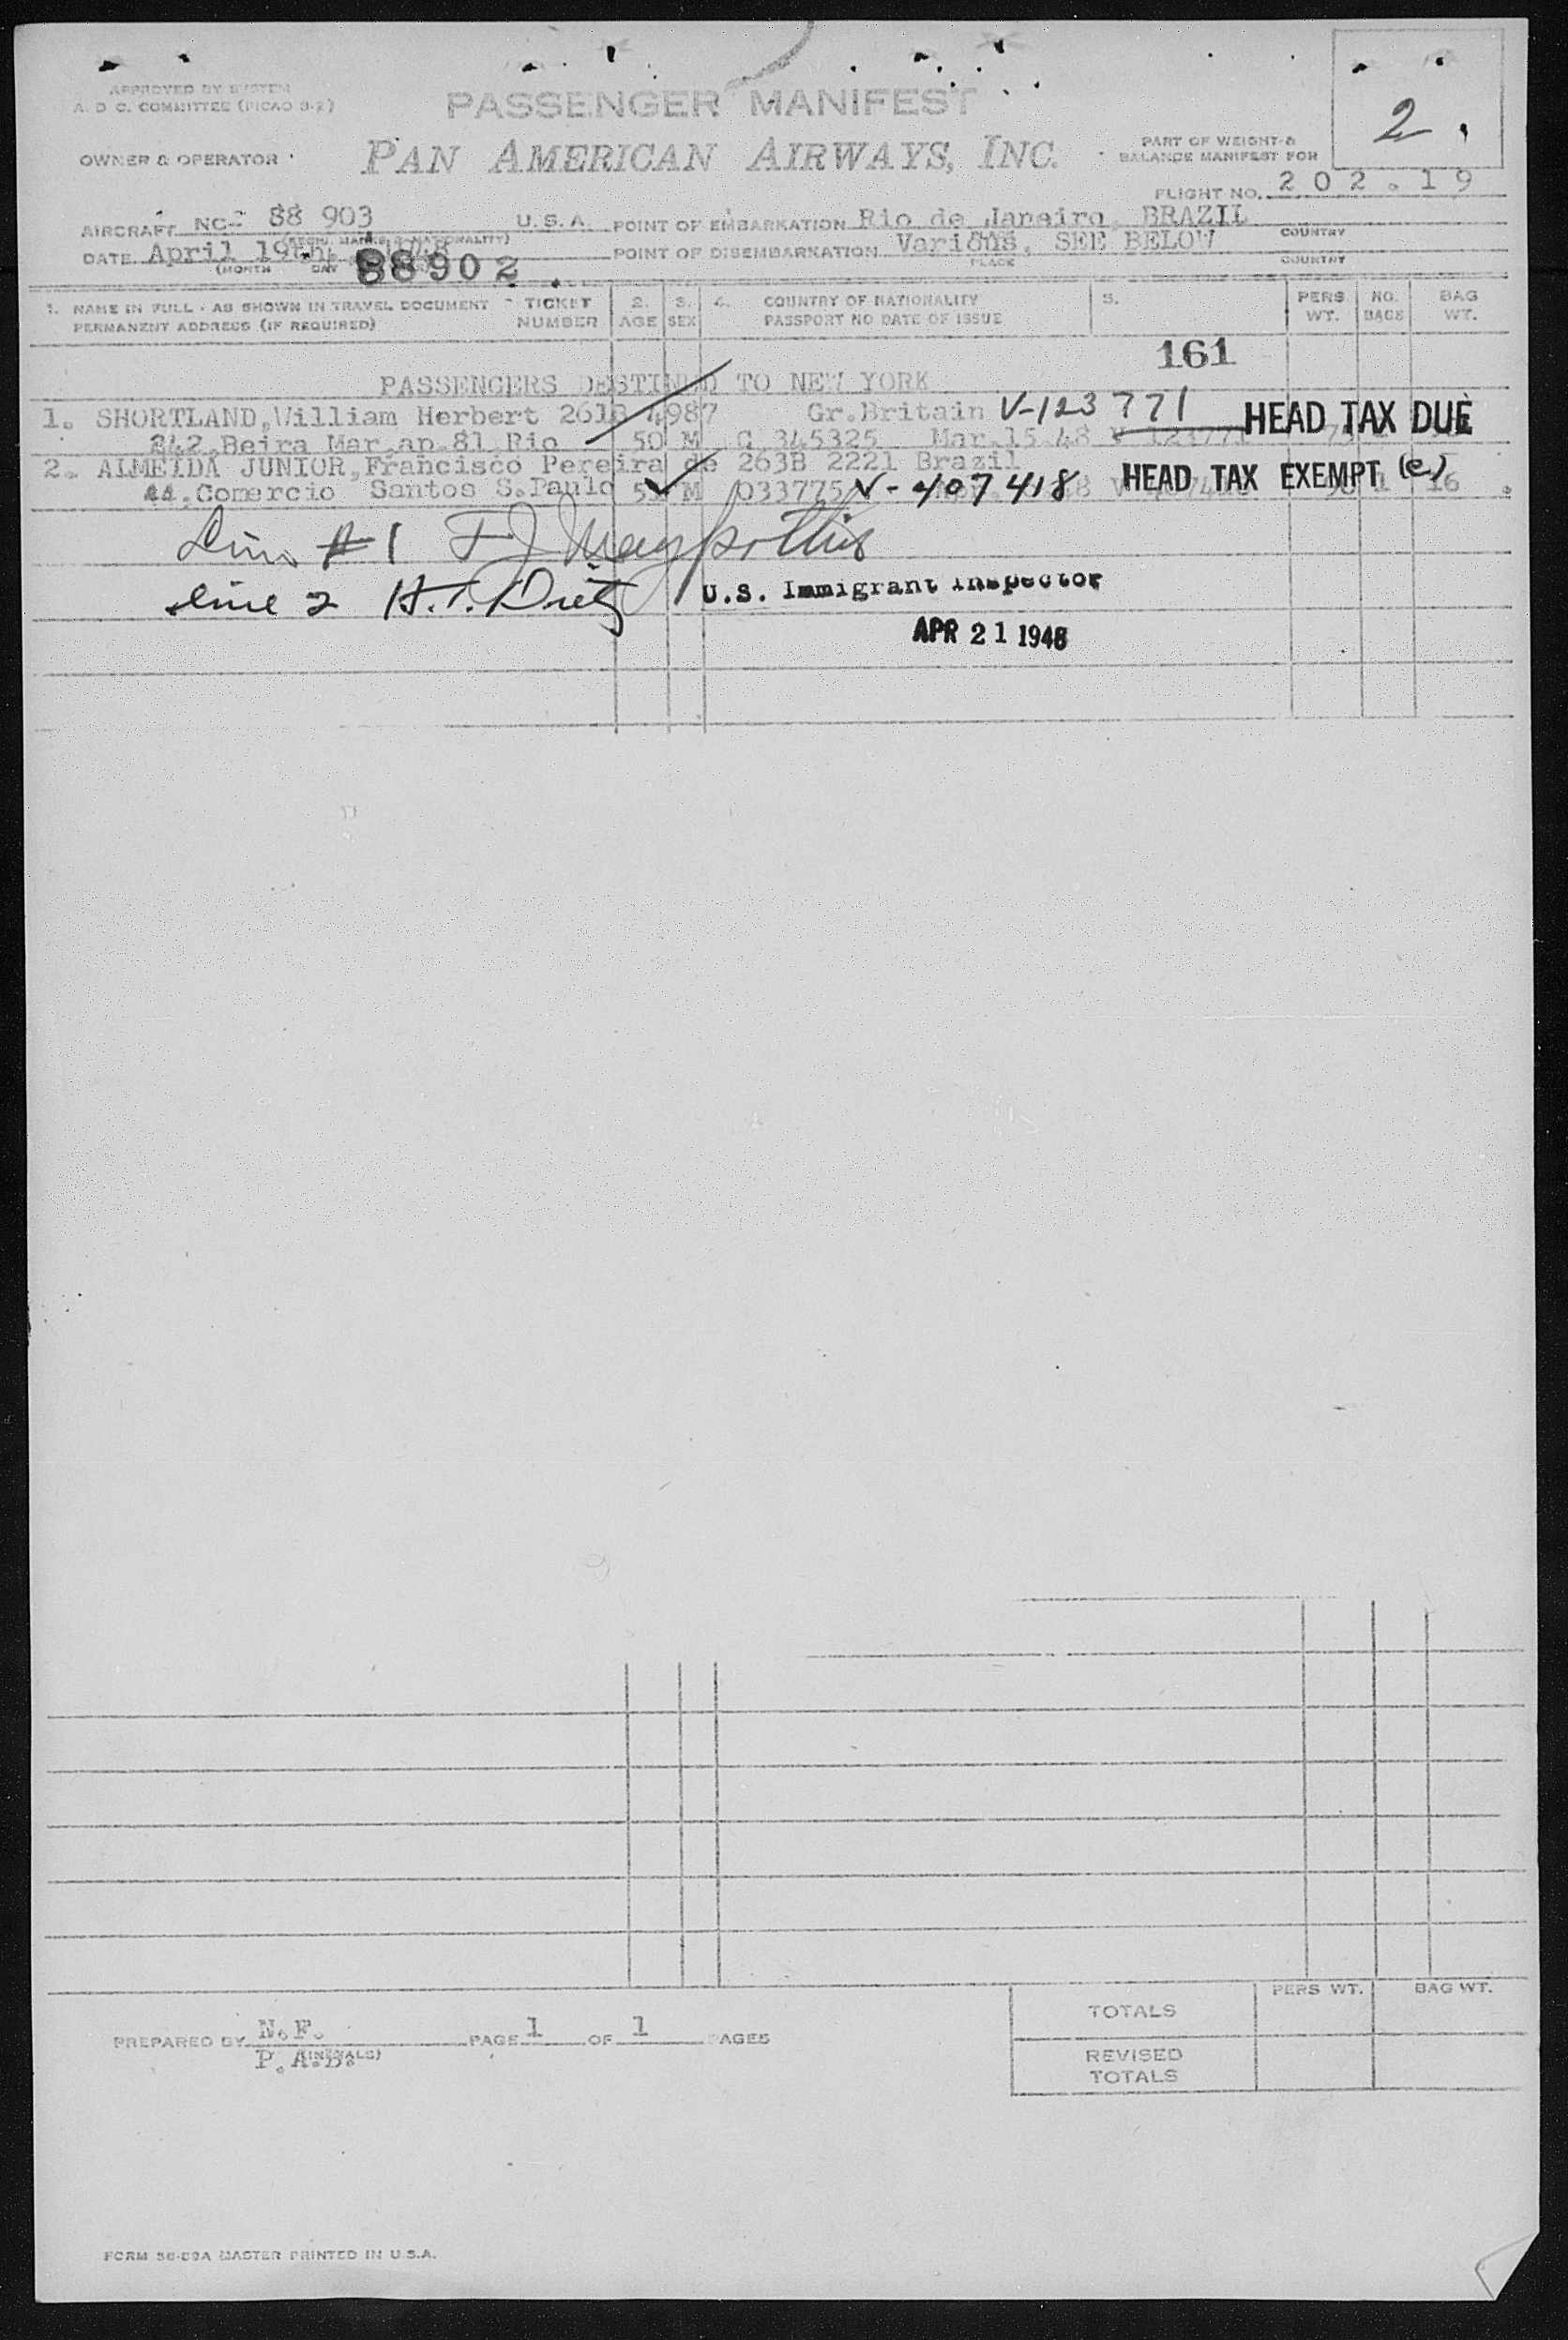 APPROVED BY SYSTEM
A. D C. COMMITTEE (PICAO 9-2)
PASSENGER MANIFEST
2.
OWNER & OPERATOR
PAN AMERICAN AIRWAYS, INC.
PART OF WEIGHT-&
BALANCE MANIFEST FOR
FLIGHT NO. 202.19
AIRCRAFT NC- 88 903 U.S.A. POINT OF EMBARKATION Rio de Janeiro, BRAZIL
COUNTRY
DATE April 19th, 88902. POINT OF DISEMBARKATION Various, SEE BELOW
(MONTH DAY PLACE COUNTRY
1. NAME IN FULL - AS SHOWN IN TRAVEL DOCUMENT TICKET 2. 3. 4. COUNTRY OF NATIONALITY 5. PERS. NO. BAG
PERMANENT ADDRESS (IF REQUIRED) NUMBER AGE SEX PASSPORT NO DATE OF ISSUE WT. BAGS WT.
161
PASSENGERS DESTINED TO NEW YORK
1. SHORTLAND, William Herbert 261B 4987 Gr.Britain V-123771 HEAD TAX DUE
242.Beira Mar.ap.81.Rio 50 M C 345325 Mar.15.48 V 123771
2. ALMEIDA JUNIOR, Francisco Pereira de 263B 2221 Brazil
44.Comercio Santos S.Paulo M 033775 V-407418 HEAD TAX EXEMPT (e) 16
Line #1
line 2 H.T. Dietz U.S. Immigrant Inspector
APR 21 1948
PREPARED BY N.F. PAGE 1 OF 1 PAGES
P.A.B. (INITIALS)
PERS WT. BAG WT.
TOTALS
REVISED
TOTALS
FORM 58-09A MASTER PRINTED IN U.S.A.